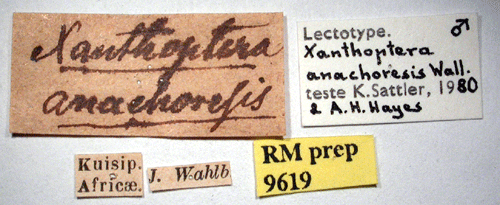 Xanthoptera
anachoresis
Lectotype. ♂
Xanthoptera
anachoresis Wall.
teste K.Sattler, 1980
& A.H.Hayes
Kuisip.
Africæ.
J. Wahlb
RM prep
9619